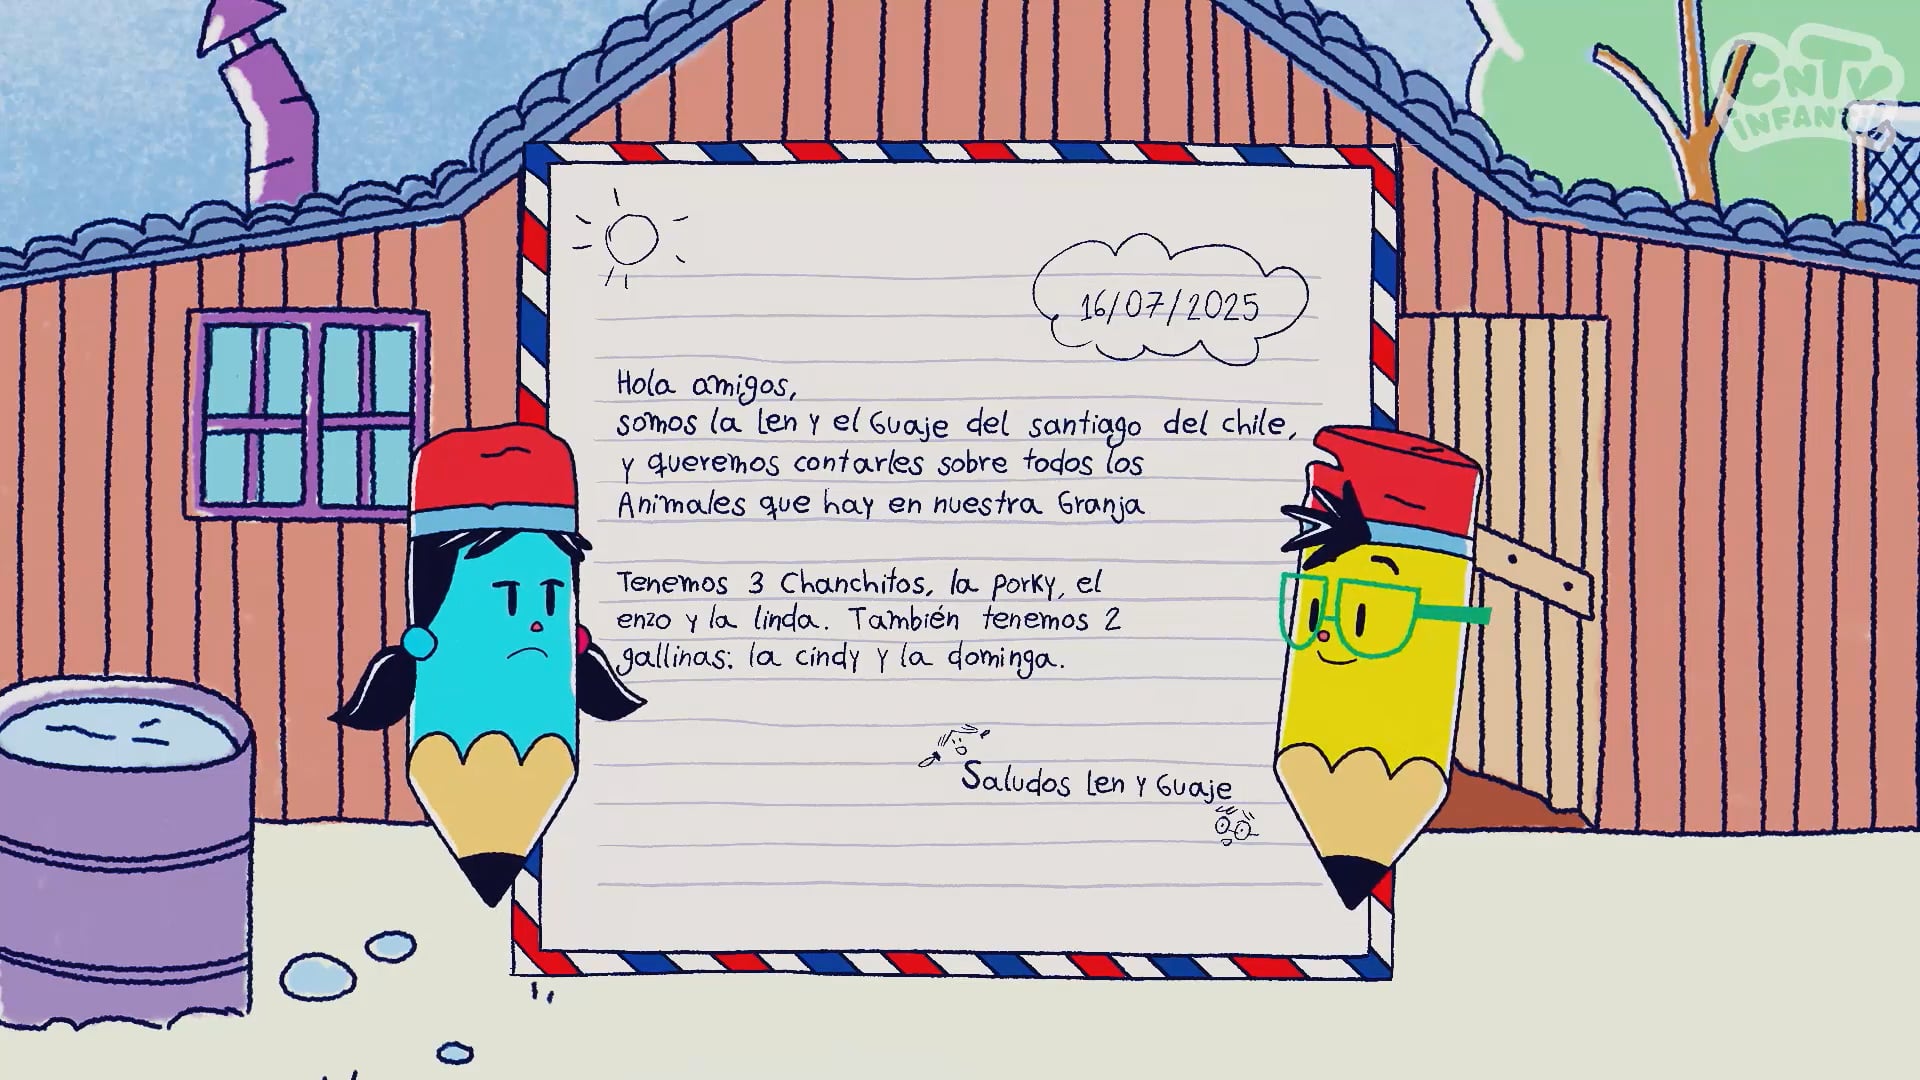 CNTV
INFANTIL
16/07/2025
Hola amigos,
somos la Len y el Guaje del santiago del chile,
y queremos contarles sobre todos los
Animales que hay en nuestra Granja
Tenemos 3 Chanchitos, la porky, el
enzo y la linda. También tenemos 2
gallinas: la cindy y la dominga.
Saludos Len y Guaje